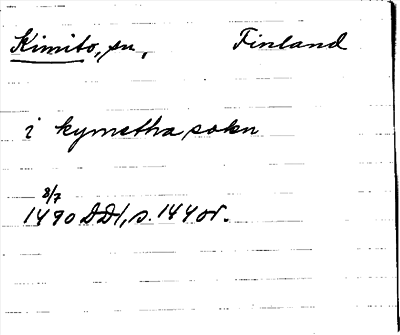 Kimito, sn, Finland
i kymetha sokn
8/7
1490 DD1, s. 144 or.